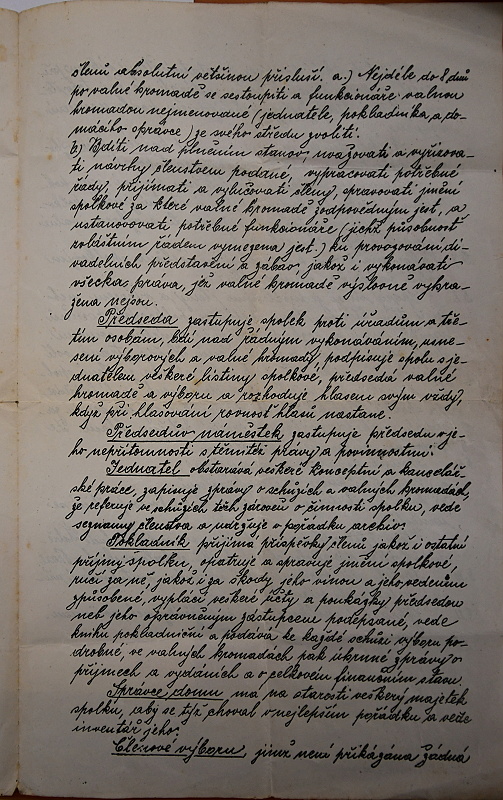 členů absolutní většinou přísluší. a.) Nejdéle do 8 dnů
po valné hromadě se sestoupiti a funkcionáře valnou
hromadou nejmenované (jednatele, pokladníka, a do-
mácího správce) ze svého středu zvoliti.
b) Bdíti nad plněním stanov, uvažovati a vyřizova-
ti návrhy členstvem podané, vypracovati potřebné
řády, přijímati a vylučovati členy, spravovati jmění
spolkové za které valné hromadě zodpovědným jest, a
ustanovovati potřebné funkcionáře (jichž působnost
zvláštním řádem vymezena jest.) ku provozování di-
vadelních představení a zábav, jakož i vykonávati
všecka práva, jež valné hromadě výslovně vyhra-
žena nejsou.
Předseda zastupuje spolek proti úřadům a tře-
tím osobám, bdí nad řádným vykonáváním, usne-
sení výborových a valné hromady, podpisuje spolu s je-
dnatelem veškeré listiny spolkové, předsedá valné
hromadě a výboru a rozhoduje hlasem svým vždy,
když při hlasování rovnost hlasů nastane.
Předsedův náměstek zastupuje předsedu v je-
ho nepřítomnosti s těmitéž právy a povinnostmi.
Jednatel obstarává veškeré konceptní a kancelář-
ské práce, zapisuje zprávy o schůzích a valných hromadách,
že referuje ve schůzích těch zároveň o činnosti spolku, vede
seznamy členstva a udržuje v pořádku archiv.
Pokladník přijímá příspěvky členů jakož i ostatní
příjmy spolku, opatruje a spravuje jmění spolkové,
ručí za ně, jakož i za škody jeho vinou a jeho vedením
způsobené, vyplácí veškeré účty a poukázky předsedou
neb jeho oprávněným zástupcem podepsané, vede
knihu pokladniční a podává ke každé schůzi výboru po-
drobné, ve valných hromadách pak úhrnné zprávy o
příjmech a vydáních a o celkovém finančním stavu.
Správce domu má na starosti veškerý majetek
spolku, aby se týž choval v nejlepším pořádku a vede
inventář jeho.
Členové výboru, jimž není přikázána žádná